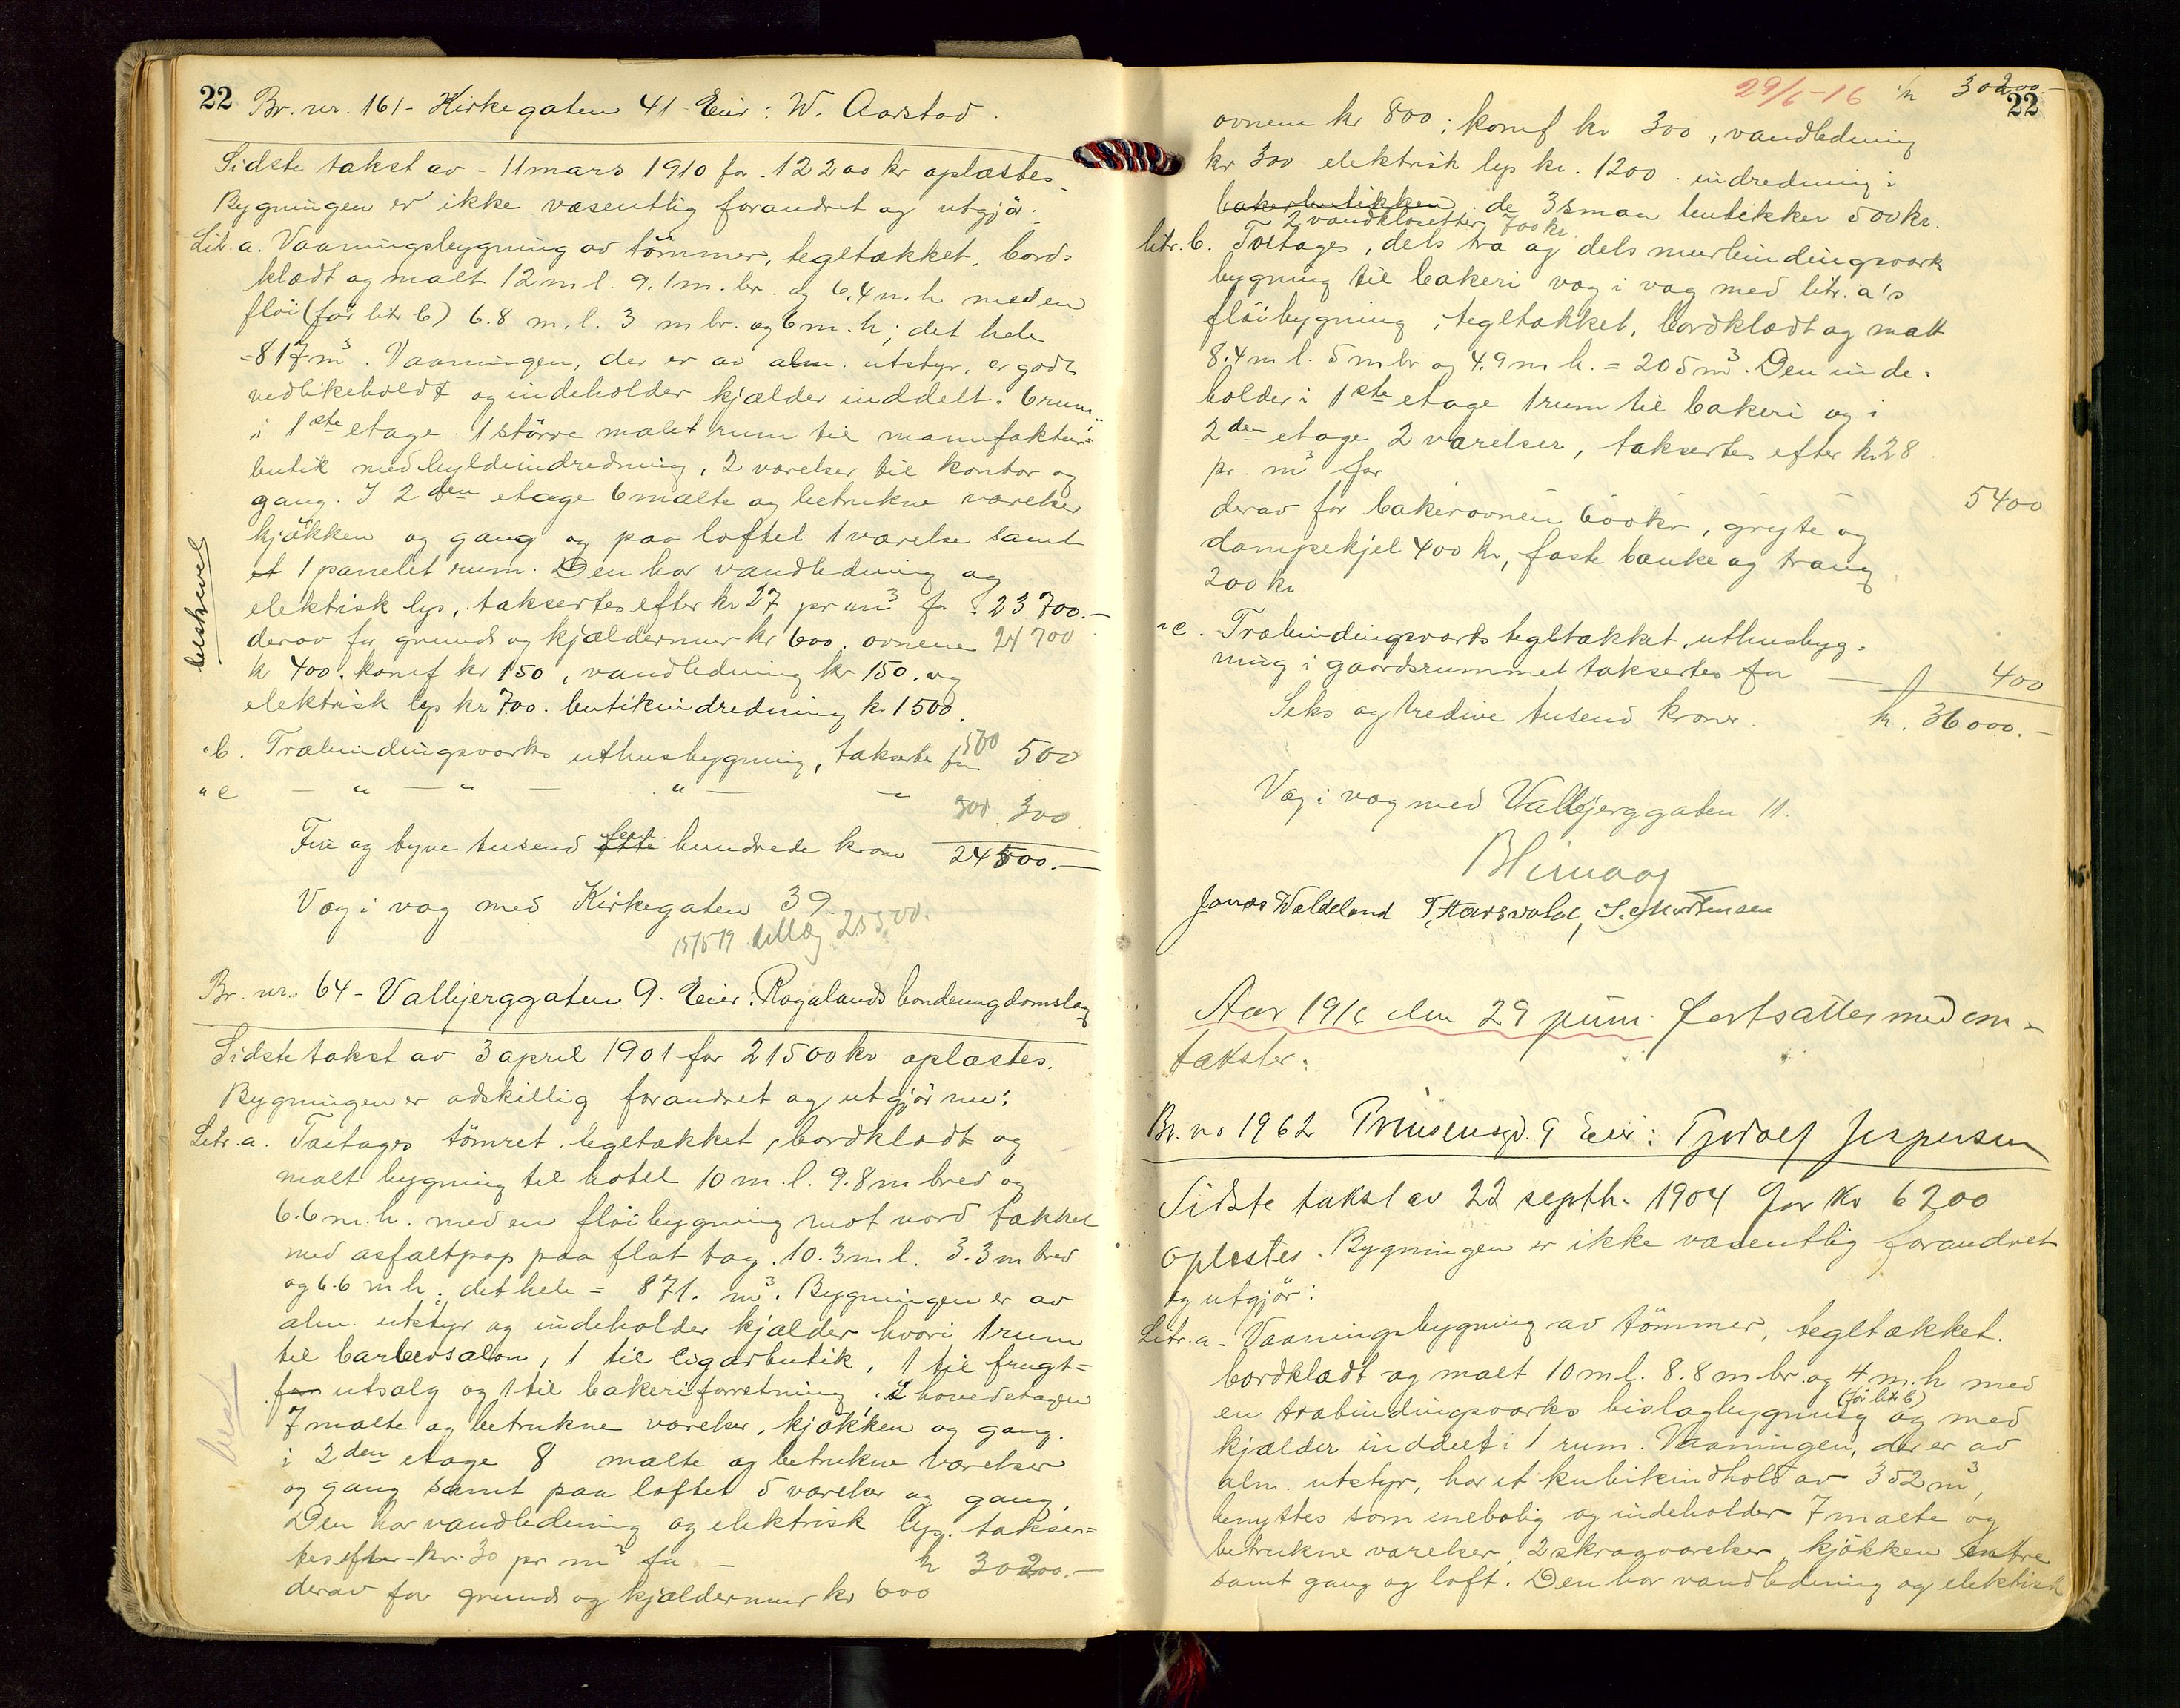 22 Br. nr. 161 - Kirkegaten 41 Eier: W. Aarstad.
Sidste takst av - 11 mars 1910 for 12200 kr oplæstes.
Bygningen er ikke væsentlig forandret og utgjør:
Litr. a. Vaaningsbygning av tömmer, tegltækket, bord=
klædt og malt 12 m l. 9.1 m. br. og 6,4 m. h med en
flöi (för litr b) 6.8 m. l. 3 m br. og 6 m. h; det hele
= 817 m³. Vaaningen, der er av alm. utstyr, er godt
vedlikeholdt og indeholder kjælder inddelt i 6 rum
i 1ste etage. 1 större malet rum til manufaktur=
butik med hyldeindredning, 2 værelser til kontor og
gang. I 2den etage 6 malte og betrukne værelser
kjökken og gang og paa loftet 1 værelse samt
et 1 panelet rum. Den har vandledning og
elektrisk lys, taksertes efter kr 27 pr m³ for 23700.-
derav for grund og kjældermur kr 600. ovnene 24700
kr 400. komf kr 150, vandledning kr 150. og
elektrisk lys kr 700. butikindredning kr 1500.
beskrevet
" b. Træbindingsverks uthusbygning, takserte for 500 500
" c — " — " — " — " 300. 300.
Fire og tyve tusend fem hundrede kroner 24500.-
Væg i væg med Kirkegaten 39.
15/5 19 tillæg 25500.
Br. nr. 64 - Valbjerggaten 9. Eier: Rogalands bondeungdomslag
Sidste takst av 3 april 1901 for 21500 kr oplæstes.
Bygningen er adskillig forandret og utgjör nu:
Litr. a. Toetages tömret tegltækket, bordklædt og
malt bygning til hotel 10 m. l. 9.8 m bred og
6.6 m. h. med en flöibygning mot nord tækket
med asfaltpap paa flat tag. 10.3 m l. 3.3 m bred
og 6.6 m h; det hele = 871. m³. Bygningen er av
alm. utstyr og indeholder kjælder hvori 1 rum
til barbersalon, 1 til sigarbutik, 1 til frugt=
utsalg og 1 til bakeriforretning, i hovedetagen
7 malte og betrukne værelser, kjökken og gang.
i 2den etage 8 malte og betrukne værelser
og gang samt paa loftet 5 værelser og gang.
Den har vandledning og elektrisk lys. takser=
tes efter kr. 30 pr m³ for — kr 30200.-
derav for grund og kjældermur kr 600
29/6-16 kr 30200.-
22
ovnene kr 800; komf kr 300, vandledning
kr 300 elektrisk lys kr. 1200. indredning i
bakerbutikken de 3 smaa butikker 500 kr.
2 vandklosetter 700 kr.
litr. b. Toetages, dels træ og dels murbindingsverks
bygning til bakeri væg i væg med litr. a's
flöibygning, tegltækket, bordklædt og malt
8.4 m l. 5 m br og 4.9 m h. = 205 m³. Den inde=
holder i 1ste etage 1 rum til bakeri og i
2den etage 2 værelser, taksertes efter kr 28
pr. m³ for 5400
derav for bakerovnen 600 kr, gryte og
dampekjel 400 kr, faste bænke og traug
200 kr
" c. Træbindingsverks tegltækket uthusbyg=
ning i gaardsrummet taksertes for — 400
Seks og tredive tusend kroner. kr. 36000.-
Væg i væg med Valbjerggaten 11.
Jonas Waldeland T. Haarsvold, S. Mortensen
Aar 1916 den 29 juni fortsattes med om=
takster:
Br. no 1962 Prinsensgd. 9 Eier: Tjodolf Jespersen
Sidste takst av 22 septbr. 1904 for Kr 6200
oplæstes. Bygningen er ikke væsentlig forandret
og utgjör:
Litr. a. Vaaningsbygning av tömmer, tegltækket.
bordklædt og malt 10 m l. 8.8 m br. og 4 m. h med
en træbindingsverks bislagbygning (för litr b) og med
kjælder inddelt i 1 rum. Vaaningen, der er av
alm. utstyr, har et kubikindhold av 352 m³,
benyttes som enebolig og indeholder 7 malte og
betrukne værelser, 2 skraaværelser, kjökken entre
samt gang og loft. Den har vandledning og elektrisk